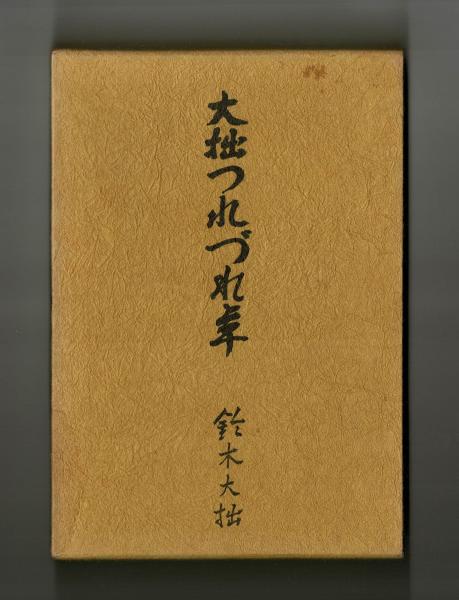 大拙つれづれ草
鈴木大拙